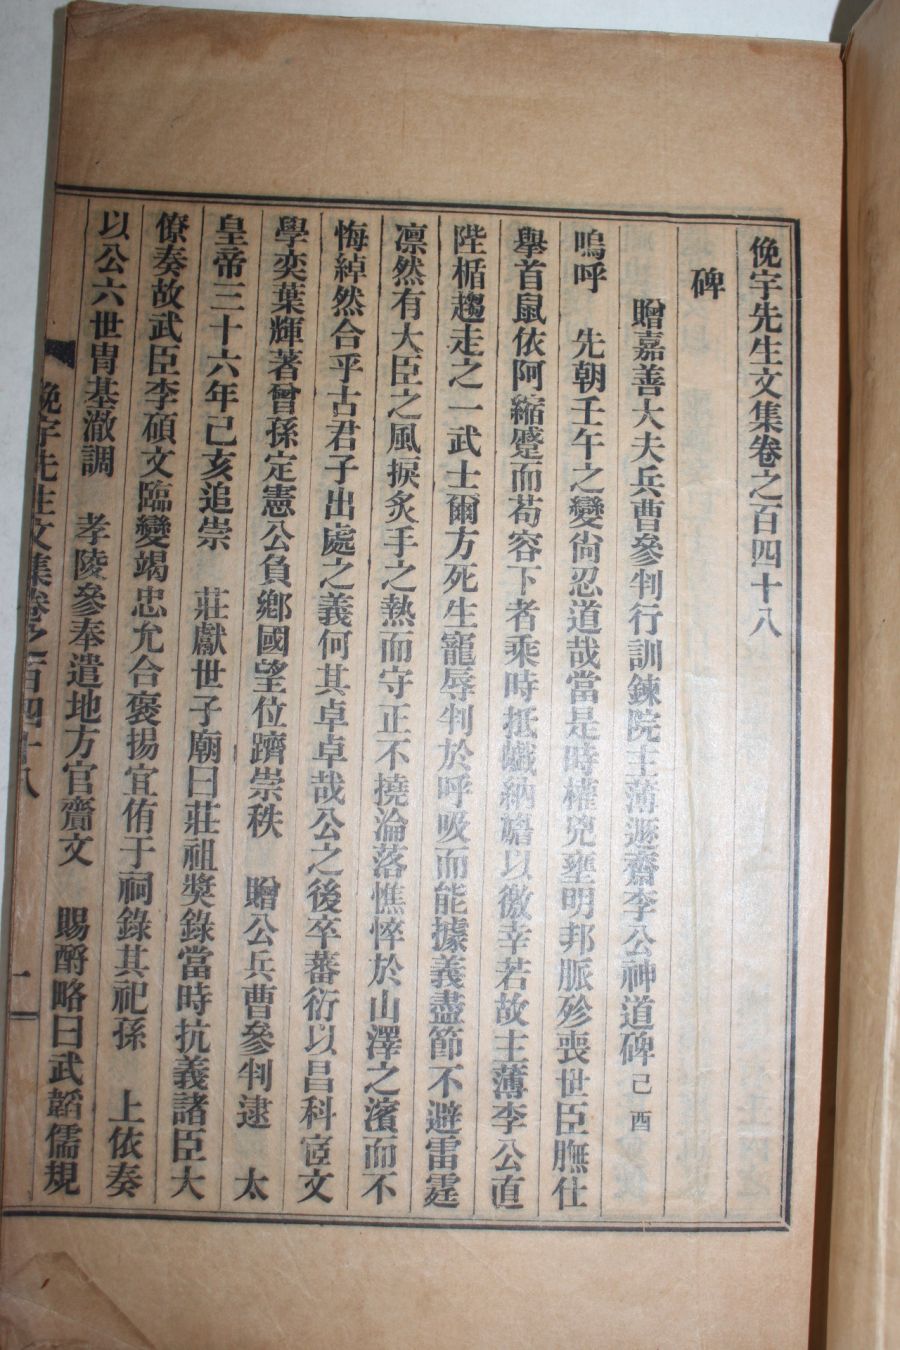 俛宇先生文集卷之百四十八
碑
贈嘉善大夫兵曹參判行訓鍊院主薄遯齋李公神道碑 己酉
嗚呼 先朝壬午之變尙忍道哉當是時權兇壅明邦脈殄喪世臣膴仕
擧首鼠依阿縮蹙而苟容下者乘時抵巇納謟以徼幸若故主薄李公直
陛楯趨走之一武士爾方死生寵辱判於呼吸而能據義盡節不避雷霆
凛然有大臣之風捩炙手之熱而守正不撓淪落憔悴於山澤之濱而不
悔綽然合乎古君子出處之義何其卓卓哉公之後卒蕃衍以昌科宦文
學奕葉輝著曾孫定憲公負鄕國望位躋崇秩 贈公兵曹參判逮 太
皇帝三十六年己亥追崇 莊獻世子廟曰莊祖奬錄當時抗義諸臣大
僚奏故武臣李碩文臨變竭忠允合褒揚宜侑于祠錄其祀孫 上依奏
以公六世胄基澈調 孝陵參奉遣地方官齎文 賜酹略曰武韜儒規
俛宇先生文集卷之百四十八
一